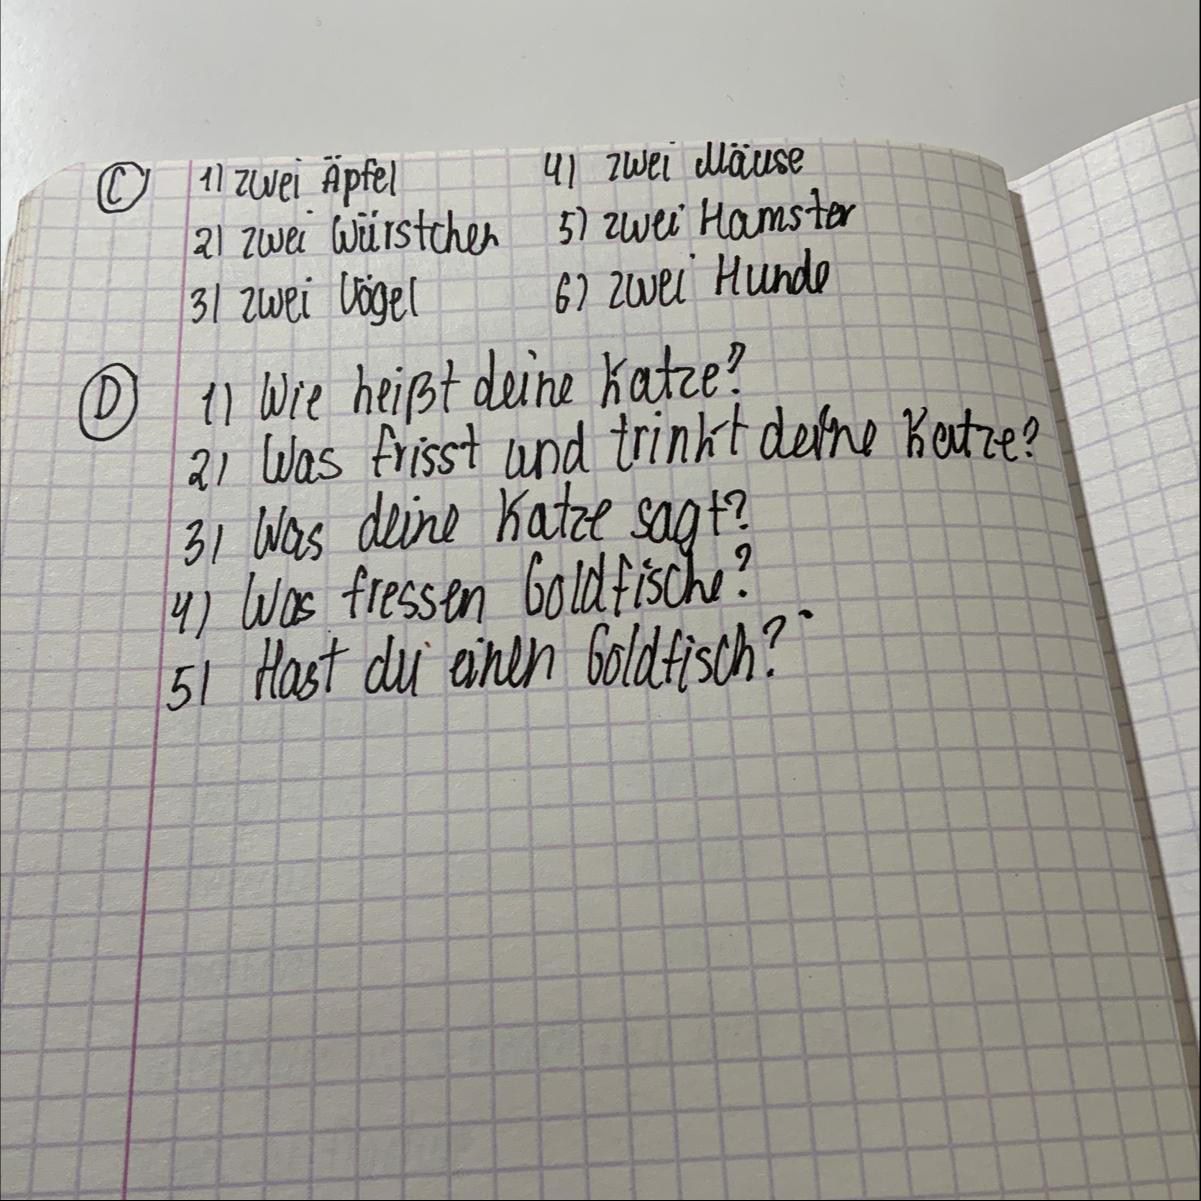 C 1) zwei Äpfel 4) zwei Mäuse
2) zwei Würstchen 5) zwei Hamster
3) zwei Vögel 6) zwei Hunde
D 1) Wie heißt deine Katze?
2) Was frisst und trinkt deine Katze?
3) Was deine Katze sagt?
4) Was fressen Goldfische?
5) Hast du einen Goldfisch?